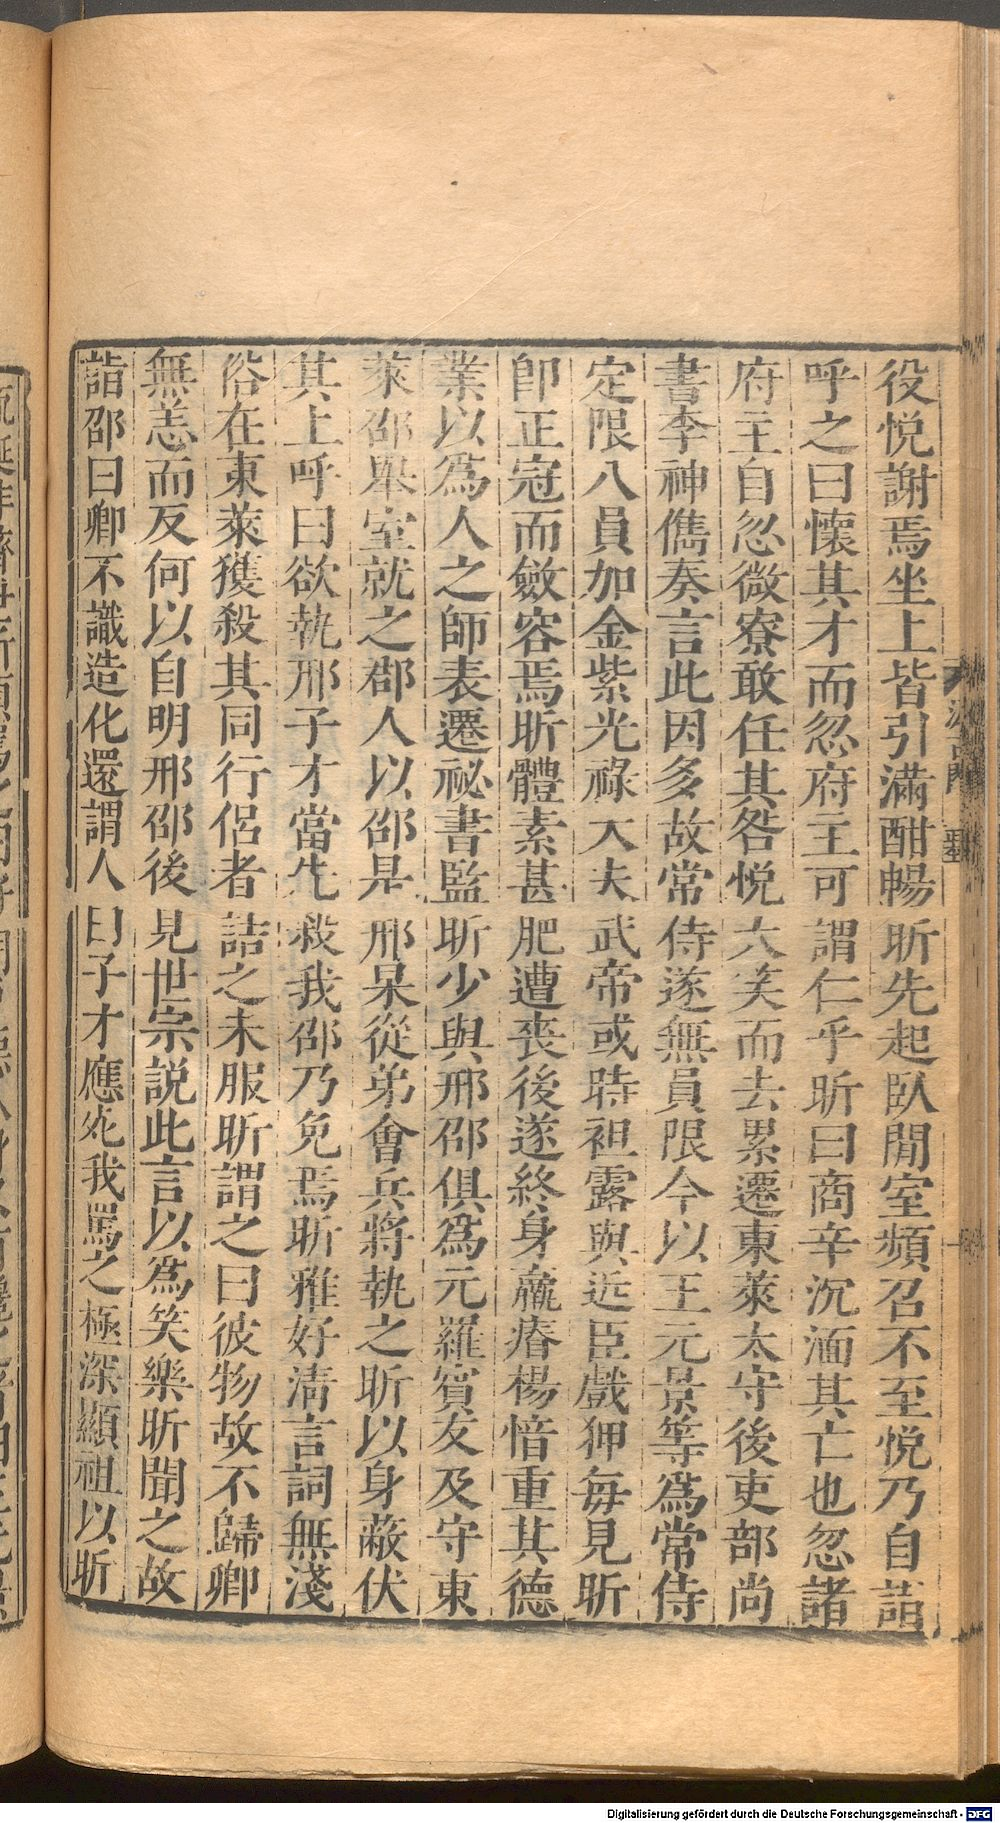 役悅謝焉坐上皆引滿酣暢昕先起臥閒室頻召不至悅乃自詣
呼之曰懷其才而忽府主可謂仁乎昕曰商辛沉湎其亡也忽諸
府主自忽微寮敢任其咎悅大笑而去累遷東萊太守後吏部尚
書李神儁奏言此因多故常侍遂無員限今以王元景等爲常侍
定限八員加金紫光祿大夫武帝或時袒露與近臣戲狎每見昕
卽正冠而斂容焉昕體素甚肥遭喪後遂終身羸瘠楊愔重其德
業以爲人之師表遷祕書監昕少與邢邵俱爲元羅賓友及守東
萊邵舉室就之郡人以邵是邢杲從弟會兵將執之昕以身蔽伏
其上呼曰欲執邢子才當先殺我邵乃免焉昕雅好淸言詞無淺
俗在東萊獲殺其同行侶者詰之未服昕謂之曰彼物故不歸卿
無恙而反何以自明邢邵後見世宗說此言以爲笑樂昕聞之故
詣邵曰卿不識造化還謂人曰子才應死我罵之極深顯祖以昕
Digitalisierung gefördert durch die Deutsche Forschungsgemeinschaft - DFG